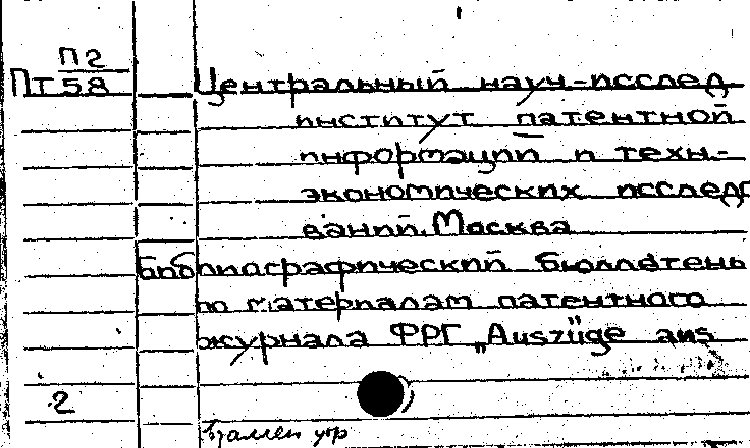 П2
Пт 58 Центральный науч-исслед
институт патентной
информации и техн-
экономических исследо
ваний. Москва
Библиографический бюллетень
по материалам патентного
журнала ФРГ „Auszüge aus
2